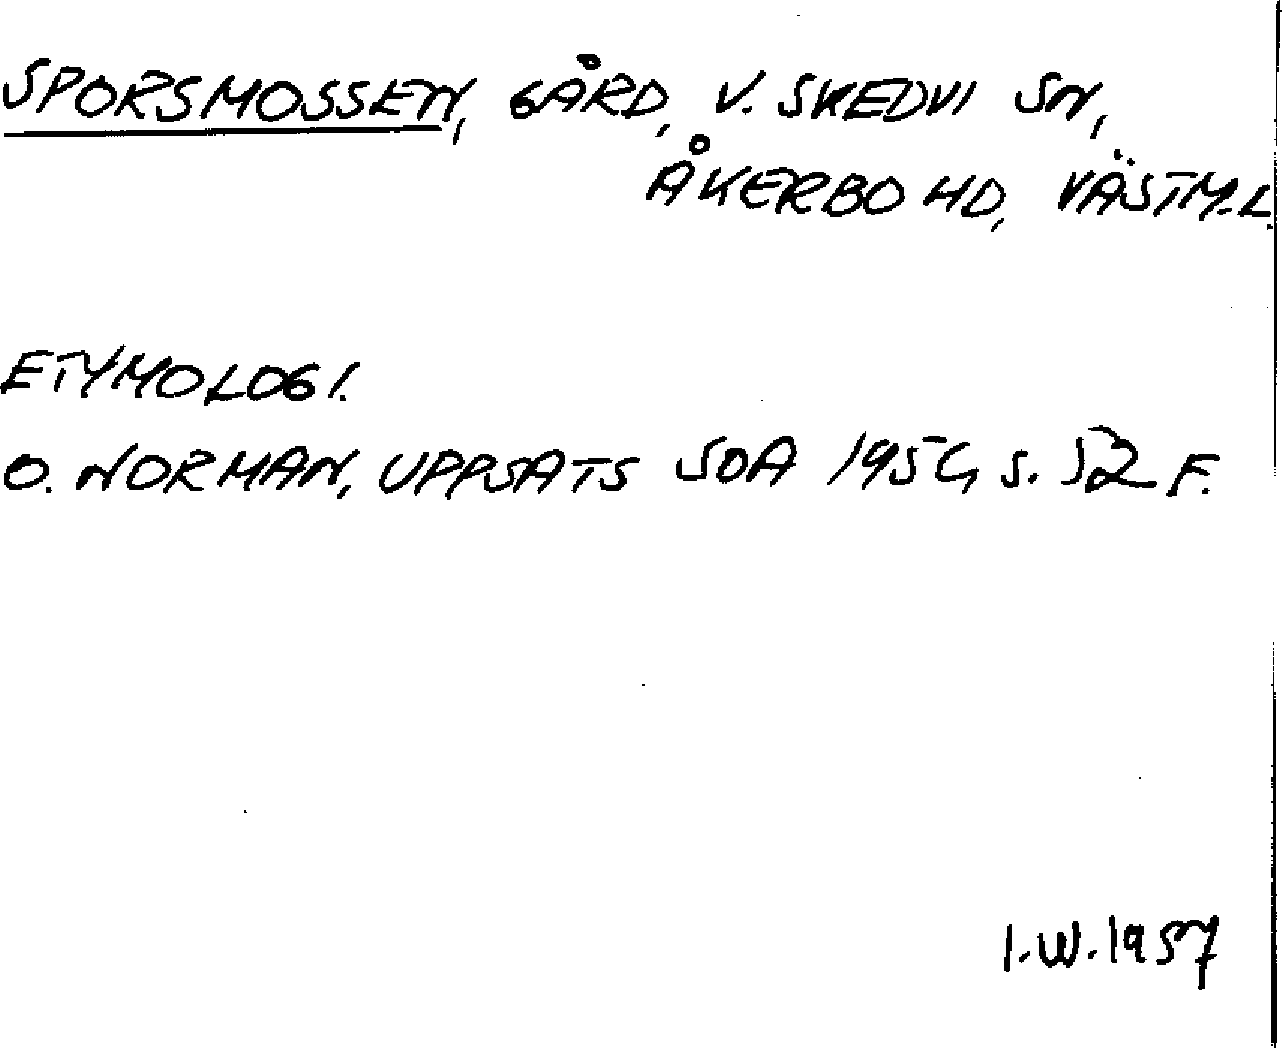 SPORSMOSSEN, GÅRD, V. SKEDVI SN,
ÅKERBO HD, VÄSTM.L.
ETYMOLOGI.
O. NORMAN, UPPSATS SOA 1954 S. 52 F.
I.W. 1957